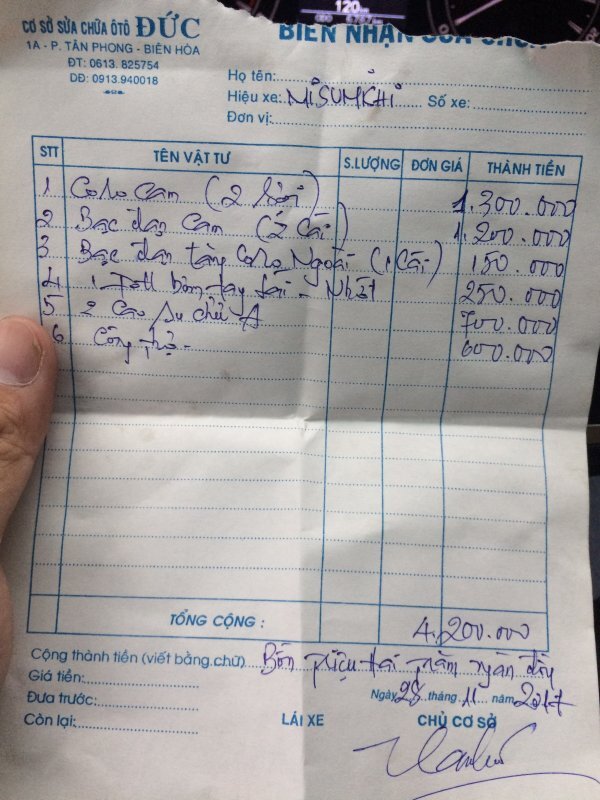 120 km
CƠ SỞ SỬA CHỮA ÔTÔ ĐỨC
1A - P. TÂN PHONG - BIÊN HÒA
ĐT: 0613. 825754
DĐ: 0913.940018
BIÊN NHẬN SỬA CHỮA
Họ tên:
Hiệu xe: MiSUMKHi Số xe:
Đơn vị:
STT TÊN VẬT TƯ S.LƯỢNG ĐƠN GIÁ THÀNH TIỀN
1 Colo cam (2 sợi) 1.300.000
2 Bạc đạn cam (2 cái) 1.200.000
3 Bạc đạn tăng colo ngoài (1 cái) 150.000
4 1 bơm tay lái - Nhớt 250.000
5 2 cao su chữ A 700.000
6 Công thợ - 600.000
TỔNG CỘNG : 4.200.000
Cộng thành tiền (viết bằng chữ) Bốn triệu hai trăm ngàn đồng
Giá tiền:
Ngày 28 tháng 11 năm 2017
Đưa trước:
Còn lại: LÁI XE CHỦ CƠ SỞ